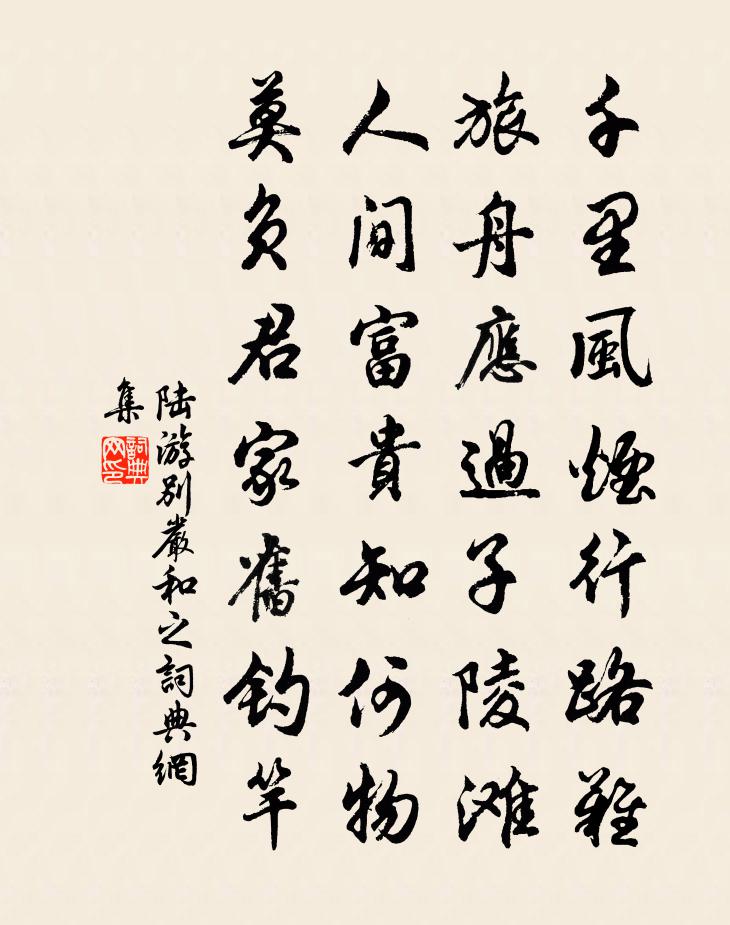 千里風煙行路難
旅舟應過子陵滩
人间富貴知何物
莫負君家舊釣竿
陆游别嚴和之詞典網
集
詞典网印